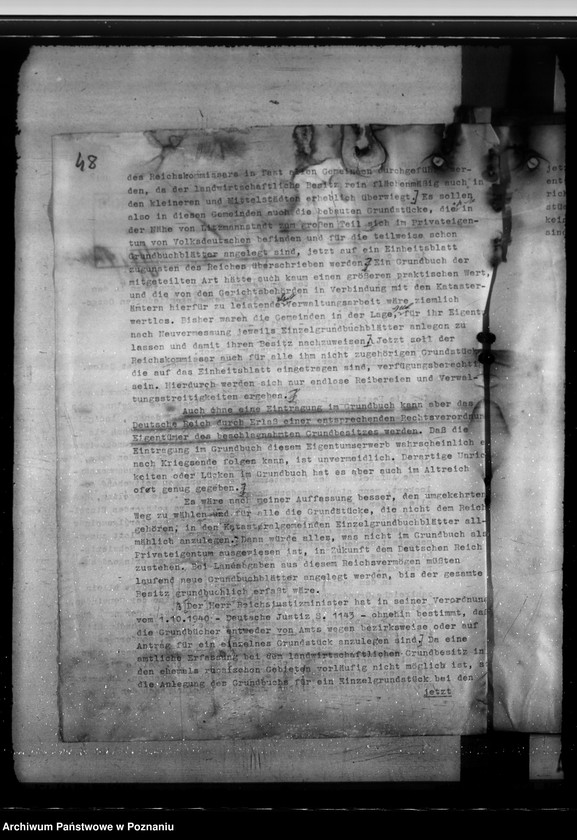 48
des Reichskommissars in fast allen Gemeinden durchgeführt wer-
den, da der landwirtschaftliche Besitz rein flächenmäßig auch in
den kleineren und Mittelstädten erheblich überwiegt. Es sollen
also in diesen Gemeinden auch die bebauten Grundstücke, die in
der Nähe von Litzmannstadt zum großen Teil sich im Privateigen-
tum von Volksdeutschen befinden und für die teilweise schon
Grundbuchblätter angelegt sind, jetzt auf ein Einheitsblatt
zugunsten des Reiches überschrieben werden. Ein Grundbuch der
mitgeteilten Art hätte auch kaum einen größeren praktischen Wert,
und die von den Gerichtsbehörden in Verbindung mit den Kataster-
ämtern hierfür zu leistende Verwaltungsarbeit wäre ziemlich
wertlos. Bisher waren die Gemeinden in der Lage, für ihr Eigentu
nach Neuvermessung jeweils Einzelgrundbuchblätter anlegen zu
lassen und damit ihren Besitz nachzuweisen. Jetzt soll der
Reichskommissar auch für alle ihm nicht zugehörigen Grundstück
die auf das Einheitsblatt eingetragen sind, verfügungsberechti
sein. Hierdurch werden sich nur endlose Reibereien und Verwal-
tungsstreitigkeiten ergeben.
Auch ohne eine Eintragung im Grundbuch kann aber das
Deutsche Reich durch Erlaß einer entsprechenden Rechtsverordnun
Eigentümer des beschlagnahmten Grundbesitzes werden. Daß die
Eintragung im Grundbuch diesem Eigentumserwerb wahrscheinlich e
nach Kriegsende folgen kann, ist unvermeidlich. Derartige Unric
keiten oder Lücken im Grundbuch hat es aber auch im Altreich
oft genug gegeben.
Es wäre nach meiner Auffassung besser, den umgekehrten
Weg zu wählen und für alle die Grundstücke, die nicht dem Reich
gehören, in den Katastralgemeinden Einzelgrundbuchblätter all-
mählich anzulegen. Dann würde alles, was nicht im Grundbuch als
Privateigentum ausgewiesen ist, in Zukunft dem Deutschen Reich
zustehen. Bei Landabgaben aus diesem Reichsvermögen müßten
laufend neue Grundbuchblätter angelegt werden, bis der gesamte
Besitz grundbuchlich erfaßt wäre.
Der Herr Reichsjustizminister hat in seiner Verordnung
vom 1.10.1940 - Deutsche Justiz S. 1143 - ohnehin bestimmt, daß
die Grundbücher entweder von Amts wegen bezirksweise oder auf
Antrag für ein einzelnes Grundstück anzulegen sind. Da eine
amtliche Erfassung bei dem landwirtschaftlichen Grundbesitz in
den ehemals russischen Gebieten vorläufig nicht möglich ist,
die Anlegung des Grundbuchs für ein Einzelgrundstück bei den
jetzt
Archiwum Państwowe w Poznaniu